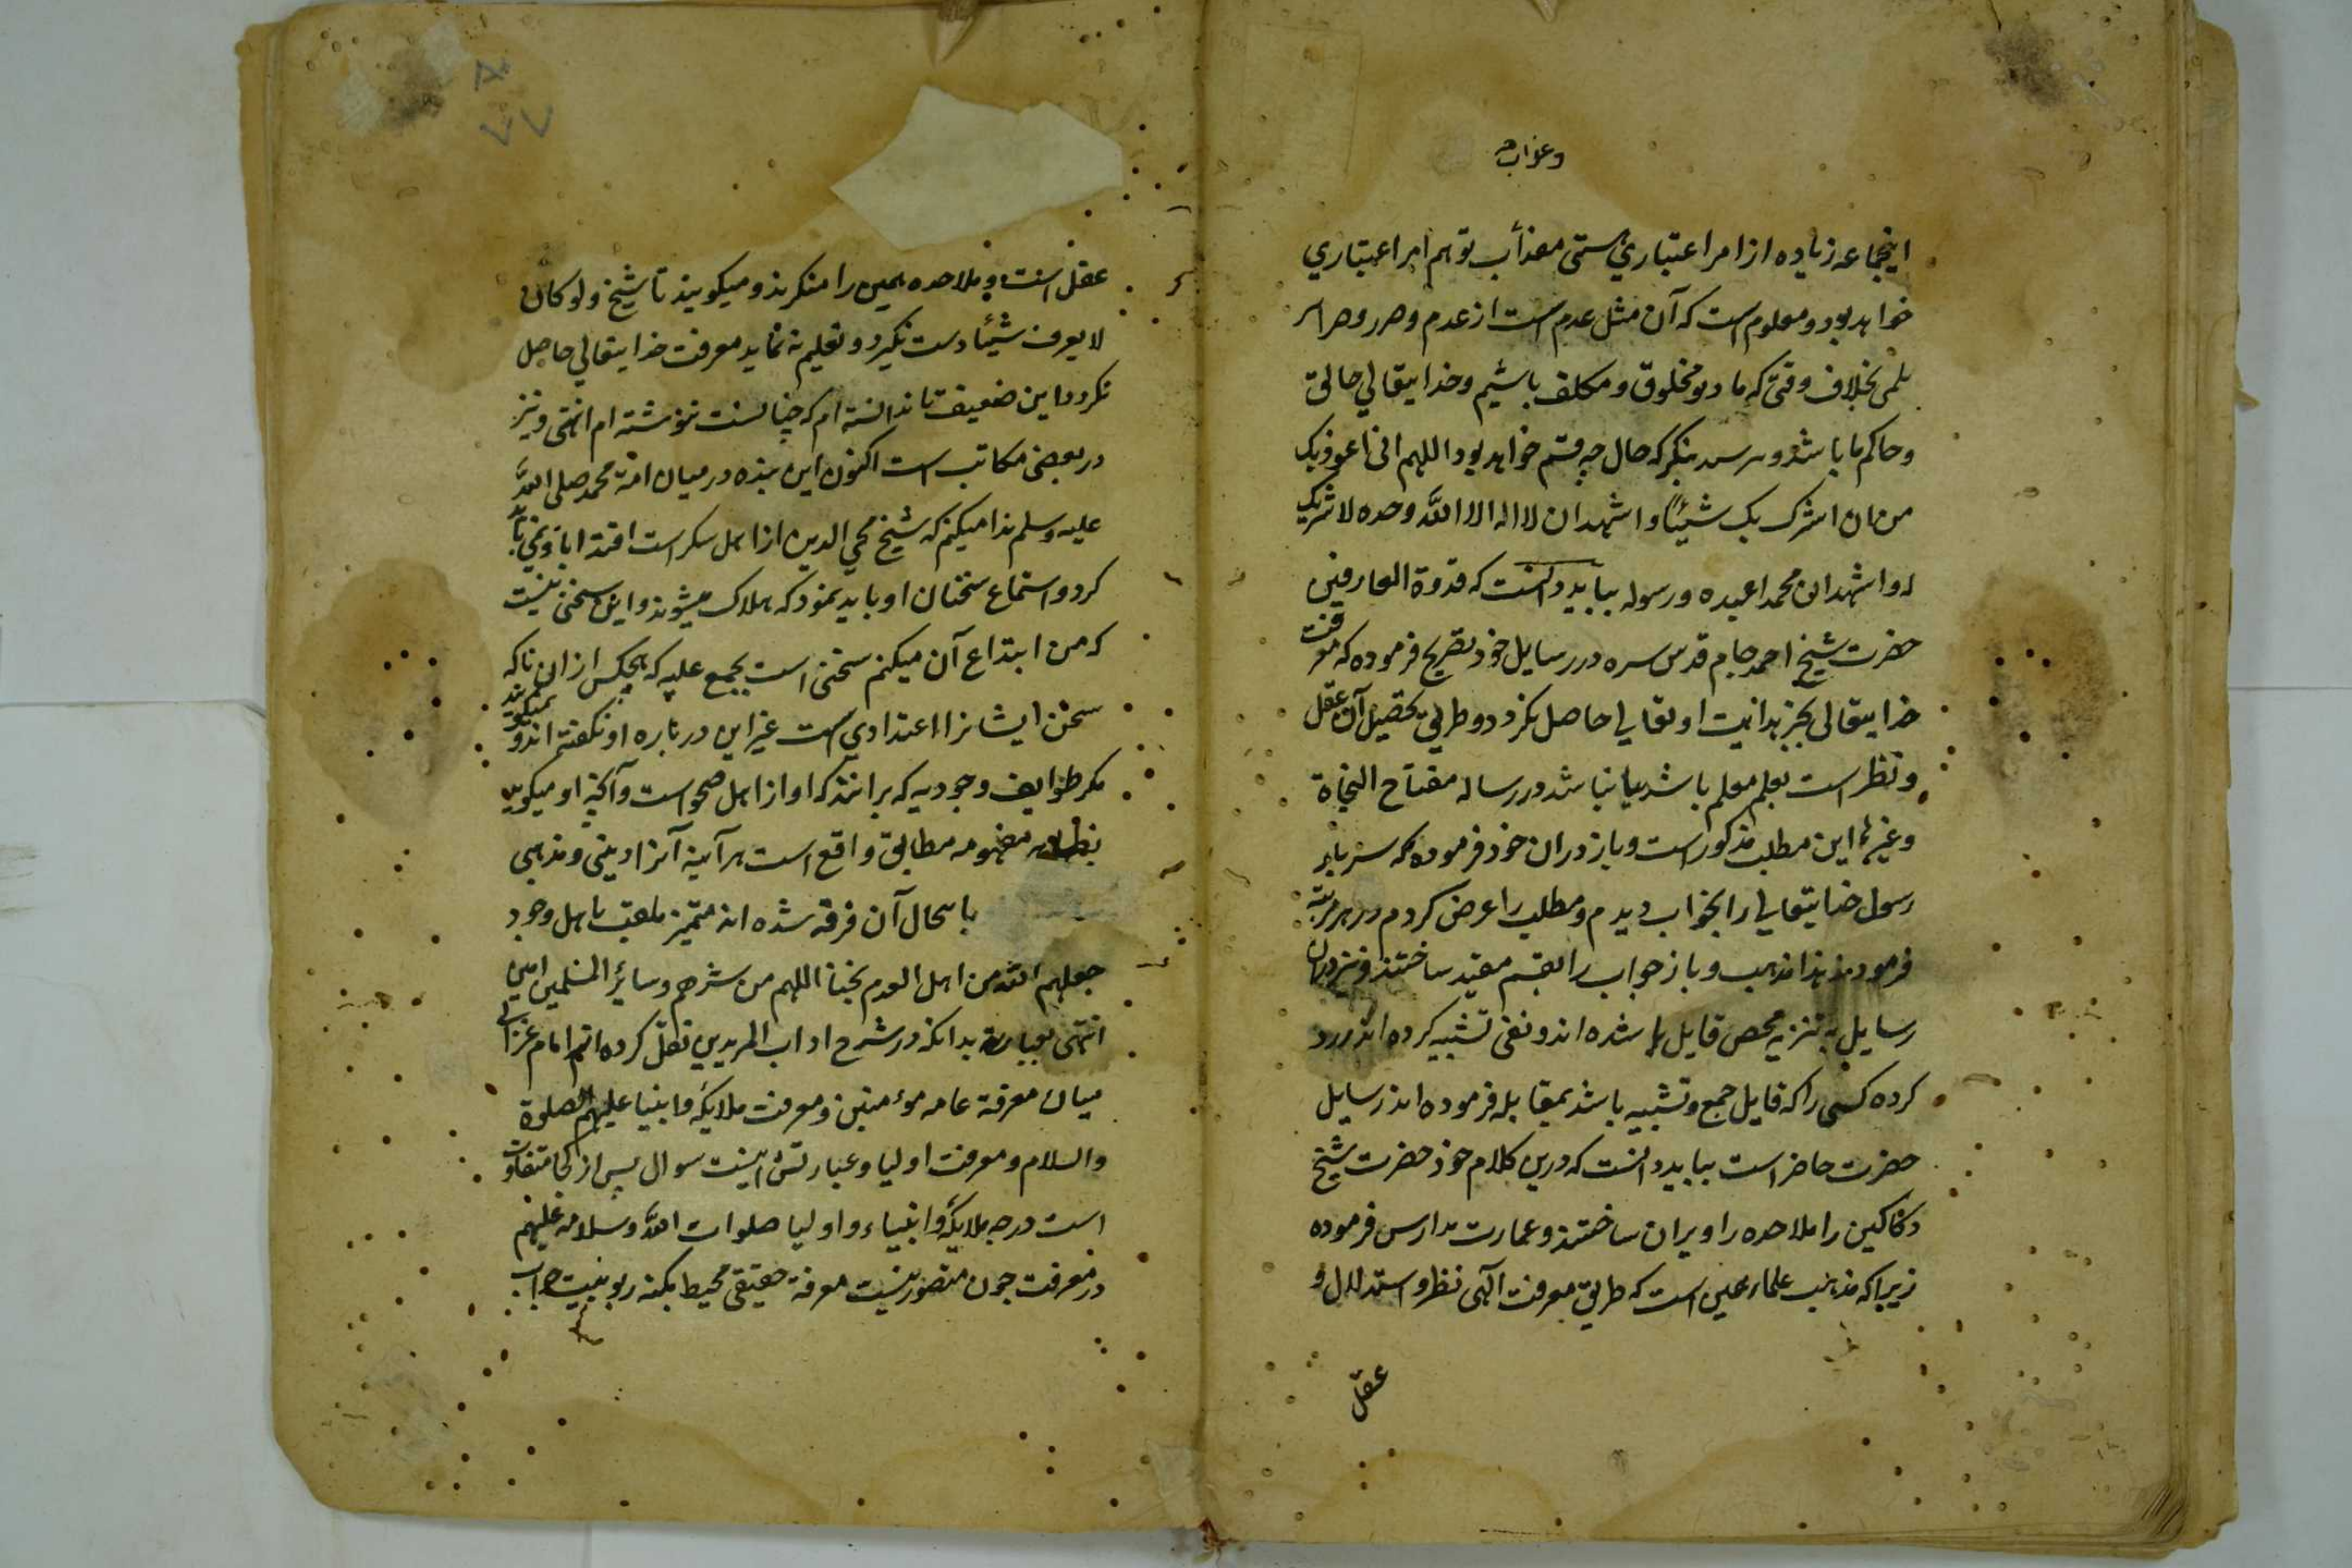 وعذاب
اینجماعه زیاده از امر اعتباری نیستی معذاب توهم امر اعتباری
خواهد بود و معلوم است که آن مثل عدم است از عدم و
بخلاف وقتی که ما و تو مخلوق و مکلف باشیم و خدایتعالی خالق
و حاکم ما باشد و بنگر که حال چه قسم خواهد بود اللهم انی اعوذ بک
من ان اشرک بک شیئاً و اشهد ان لا اله الا اللّه وحده لا شریک
له و اشهد ان محمدا عبده و رسوله بباید دانست که قدوة العارفین
حضرت شیخ احمد جام قدس سره در رسایل خود تصریح فرموده که معرفت
خدایتعالی بجز بدانیت او تعالی حاصل نکردد و طریق تحصیل آن عقل
و نظر است بعلم معلم باشد یا نباشد و در رساله مفتاح النجاة
و غیرها این مطلب مذکور است و باز در ان خود فرموده که سه بار
رسول خدایتعالی را بخواب دیدم و مطلب را عرض کردم در هر مرتبة
فرمودند هذا مذهب و باز جواب را بقسم مقید ساختند و نیز در ان
رسایل به تنزیه محص قایل شده اند و نفی تشبیه کرده اند و رد
کرده کسی را که قایل جمع و تشبیه باشد بمقابله فرموده اند رسایل
حضرت حاضر است بباید دانست که درین کلام خود حضرت شیخ
دکاکین را ملاحده را ویران ساختند و عمارت مدارس فرموده
زیرا که مذهب علماء همین است که طریق معرفت آلهی نظر و استدلال و
عقل
عقل است و ملاحده همین را منکرند و میکویند تا شیخ و لو کان
لا یعرف شیئا دست نکیرد و تعلیم نه نماید معرفت خدایتعالی حاصل
نکردد این ضعیف تا ندانسته ام که چنانست ننوشته ام انتهی و نیز
در بعضی مکاتب است اکنون این بنده در میان امة محمد صلی اللّه
علیه و سلم ندا میکنم که شیخ محی الدین از اهل سکر است اقتدا باو نمی باید
کرد و استماع سخنان او باید نمود که هلاک میشوند و این سخنی نیست
که من ابتداع آن میکنم سخنی است مجمع علیه که هیچکس از انان که
سخن ایشانرا اعتدادی هست غیر این در باره او نکفته اند و نمیکویند
مکر طوایف وجودیه که برانند که او از اهل صحو است و آنچه او میکوید
بظاهر مفهومه مطابق واقع است هرآینه آنرا دینی و مذهبی
باسحال آن فرقه شده اند متمیز ملقب باهل وجود
جعلهم اللّه من اهل العدم نجنا اللهم من شرهم و سایر المسلمین امین
انتهی بعبارة بدانکه در شرح اداب المریدین نقل کرده اند امام غزالی
میان معرفة عامه مومنین و معرفت ملایکه و انبیا علیهم الصلوة
والسلام و معرفت اولیا و عبارتش اینست سوال پس از کجا متفاوت
است درجه ملایکه و انبیاء و اولیا صلوات اللّه و سلامه علیهم
در معرفت چون متصور نیست معرفة حقیقی محیط بکنه ربوبیت جواب